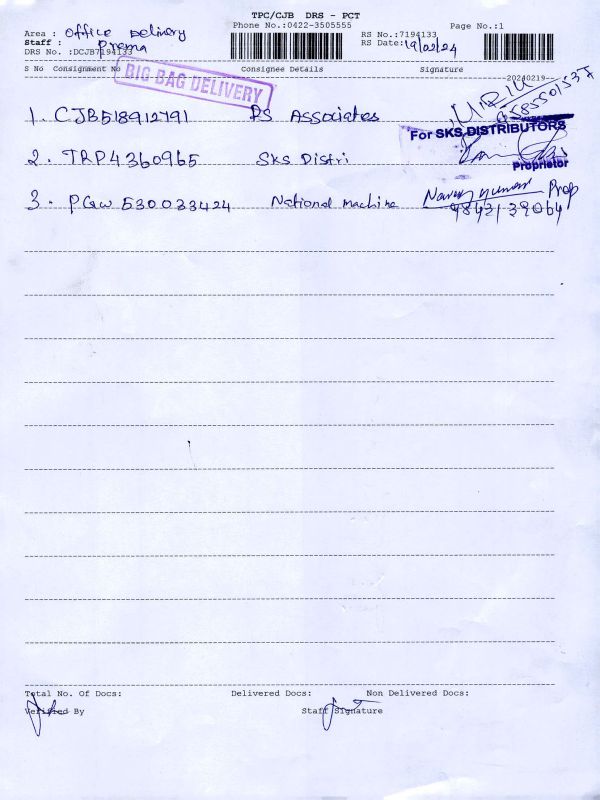 TPC/CJB DRS - PCT
Phone No.:0422-3505555
Page No.:1
Area : Office Delivery
Staff : Prema
DRS No. :DCJB7194133
RS No.:7194133
RS Date:19/02/24
S No Consignment No Consignee Details Signature
20240219
BIG BAG DELIVERY
1. CJB518912791 PS Associates
For SKS DISTRIBUTORS
2. TRP4360965 SKS Distri
Proprietor
3. PGW 530033424 National machine Naveen Kumar Prop
98421 39064
Total No. Of Docs: Delivered Docs: Non Delivered Docs:
Verified By Staff Signature